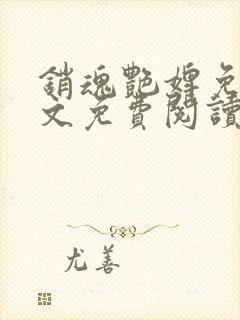 銷魂艷婢免
文免費閱讀
尤善